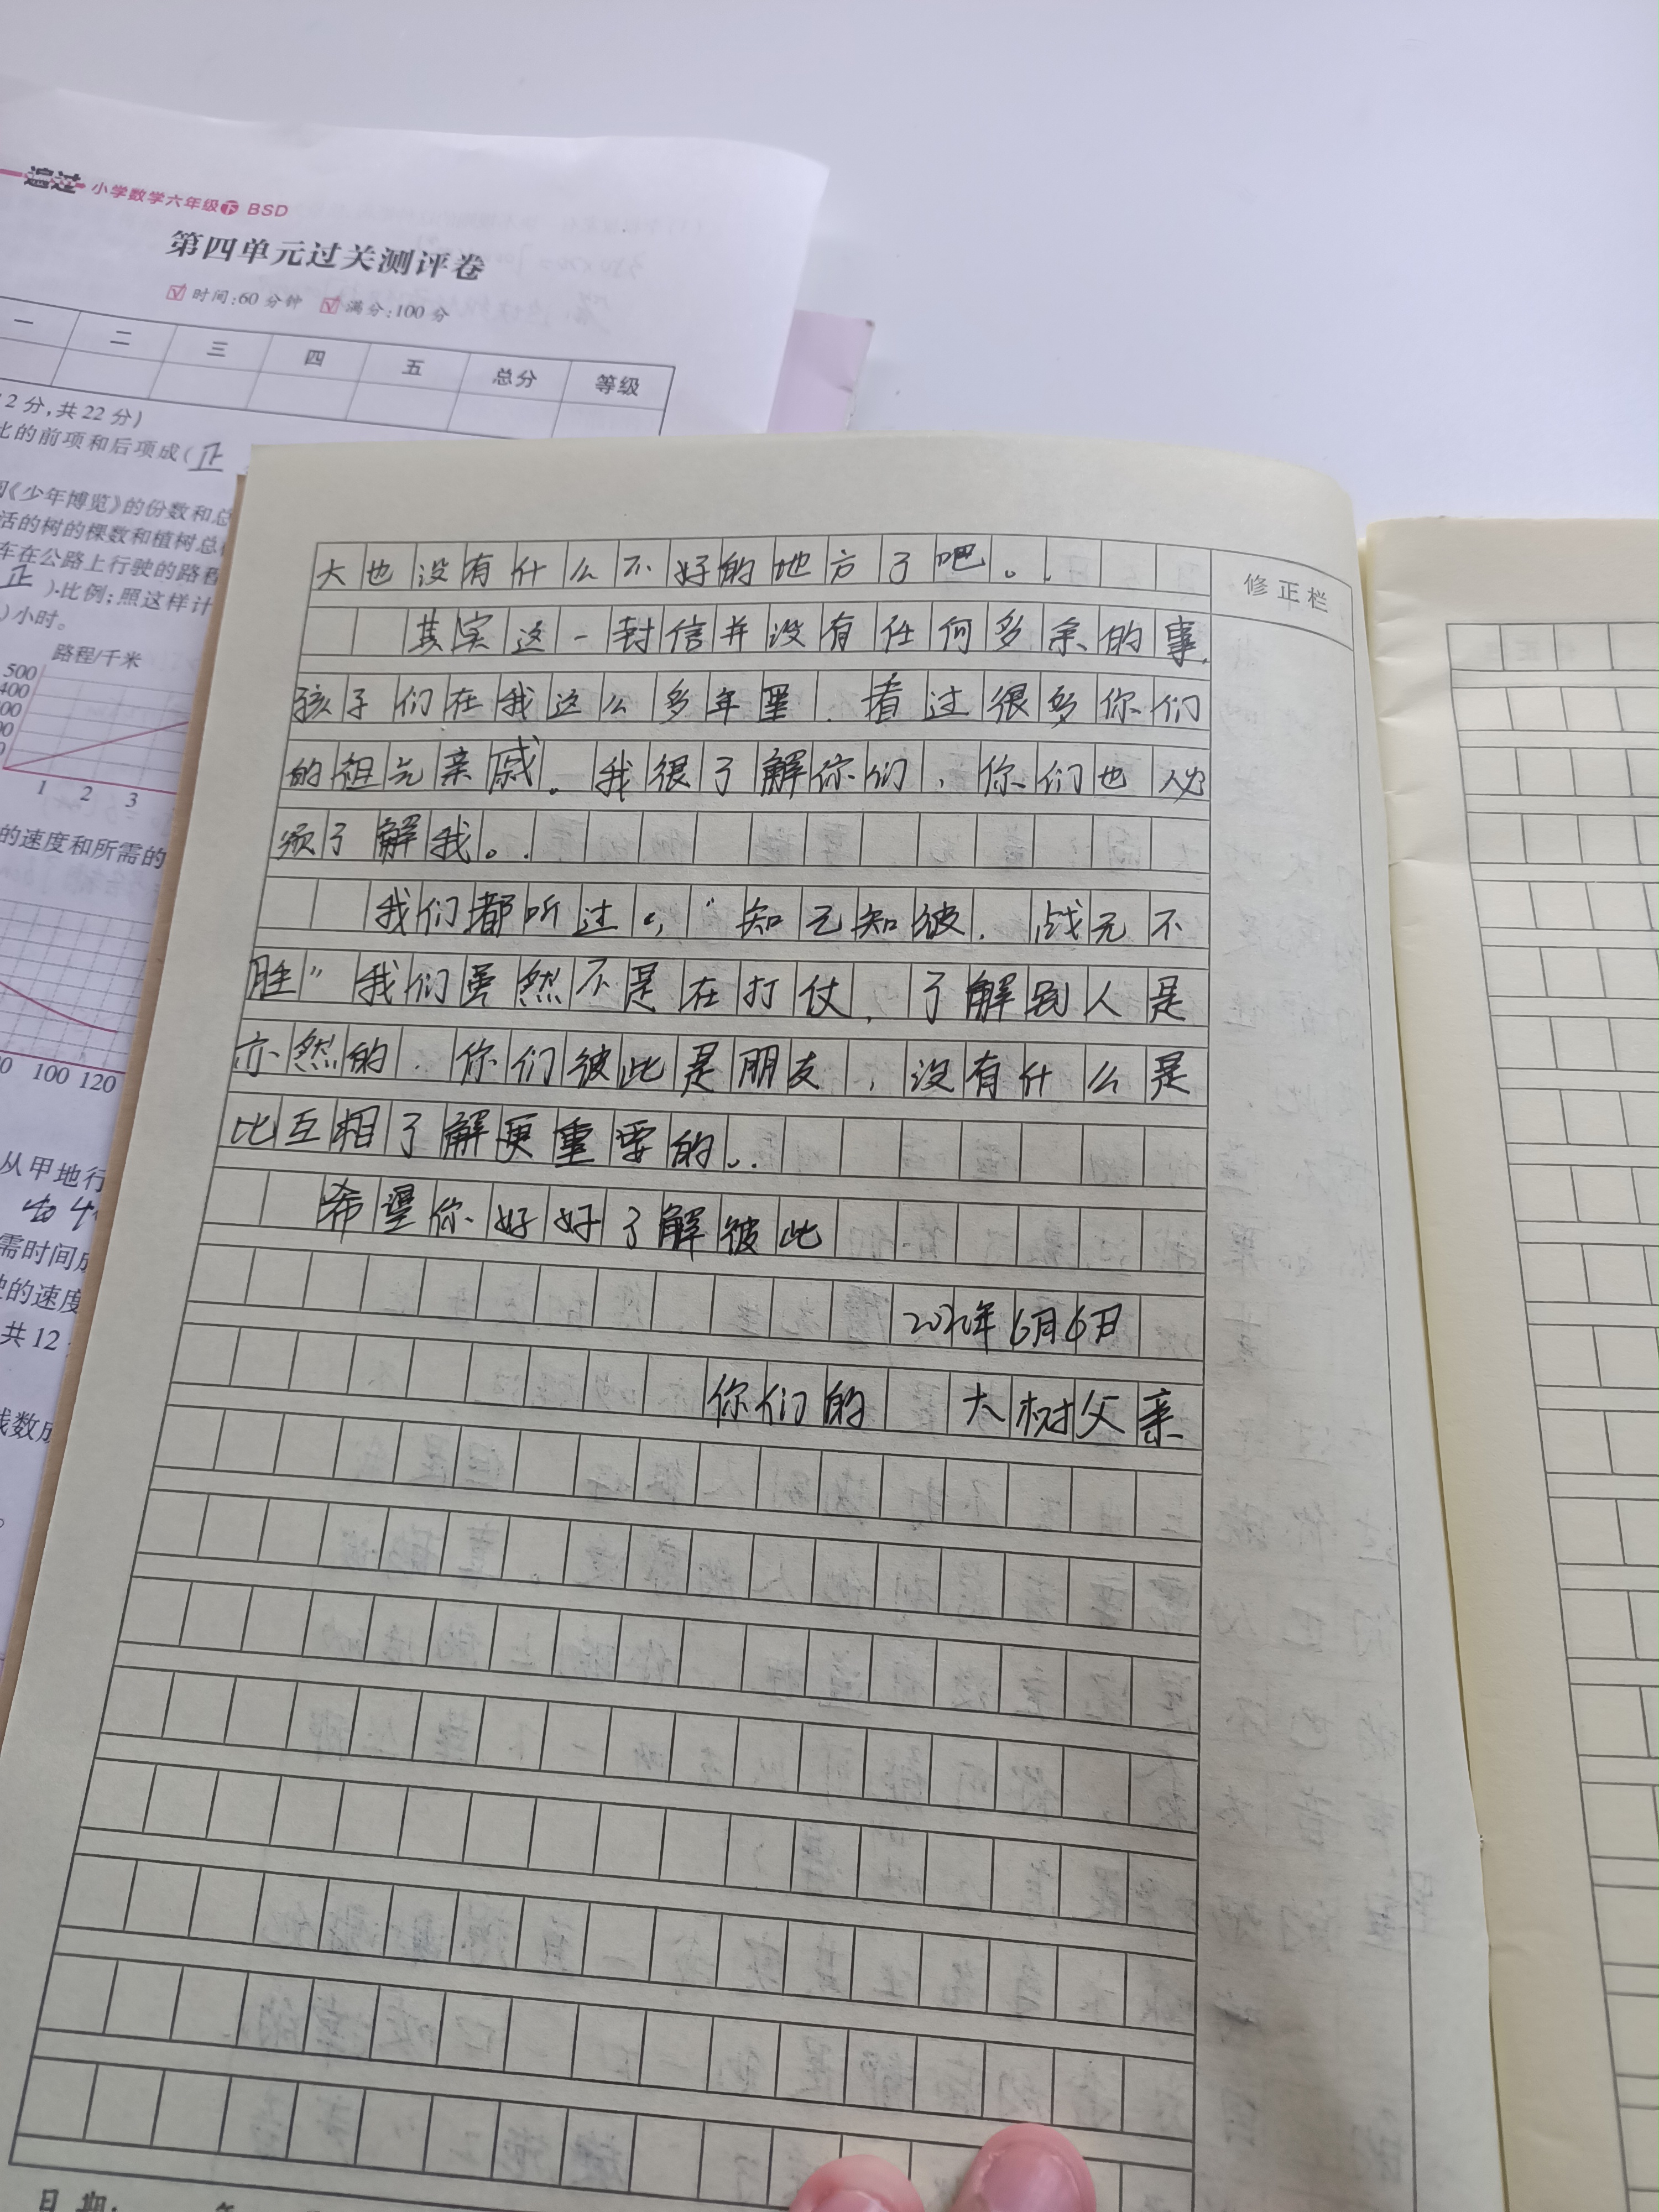 一遍过 小学数学六年级下 BSD
第四单元过关测评卷
时间:60分钟 满分:100分
一 二 三 四 五 总分 等级
2分,共22分)
比的前项和后项成(正
《少年博览》的份数和总
活的树的棵数和植树总
车在公路上行驶的路程
正)比例;照这样计
)小时。
路程/千米
500
400
1 2 3
的速度和所需的
100 120
从甲地行
需时间成
的速度
共12
线数成
修正栏
大也没有什么不好的地方了吧。
其实这一封信并没有任何多余的事,
孩子们在我这么多年里,看过很多你们
的祖先亲戚。我很了解你们,你们也必
须了解我。
我们都听过,“知己知彼,战无不
胜”我们虽然不是在打仗,了解别人是
亦然的,你们彼此是朋友,没有什么是
比互相了解更重要的。
希望你好好了解彼此
年6月6日
你们的 大树父亲
日期: 年